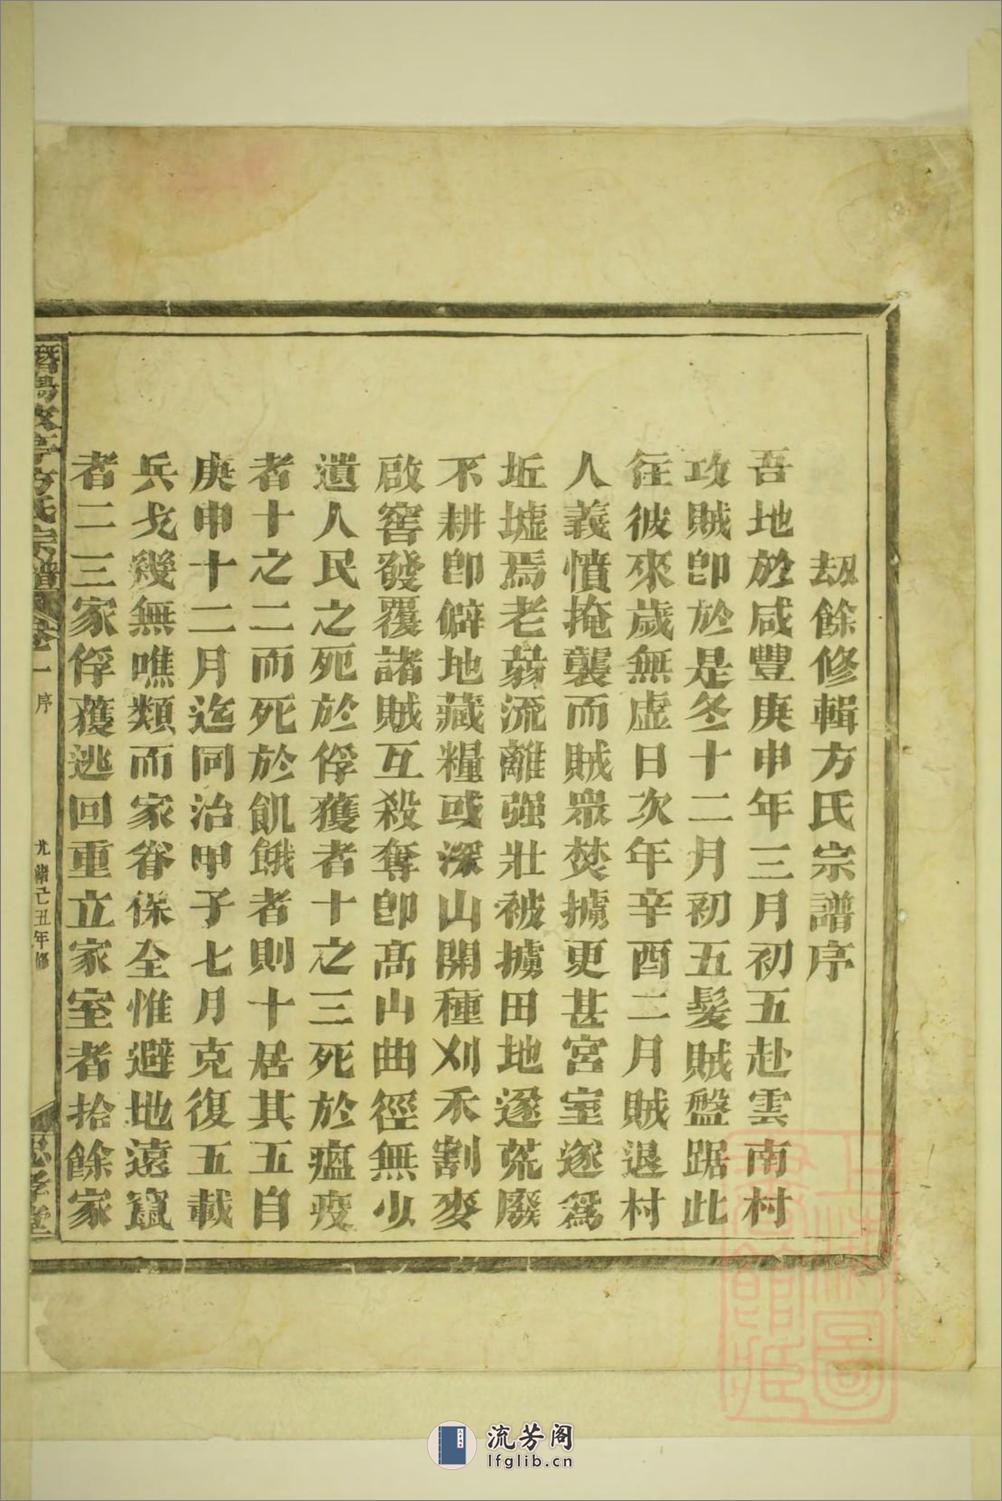 劫餘修輯方氏宗譜序
吾地於咸豐庚申年三月初五赴雲南村
攻賊卽於是冬十二月初五髮賊盤踞此
徃彼來歲無虛日次年辛酉二月賊退村
人義憤掩襲而賊眾焚擄更甚宮室遂爲
坵墟焉老蒻流離强壯被擄田地遂荒廢
不耕卽僻地藏糧或深山開種刈禾割麥
啟窖發覆諸賊互殺奪卽高山曲徑無少
遺人民之死於俘獲者十之三死於瘟疫
者十之二而死於飢餓者則十居其五自
庚申十二月迄同治甲子七月克復五載
兵戈幾無噍類而家眷保全惟避地遠竄
者二三家俘蒦逃回重立家室者拾餘家
陽 亭方氏宗譜 卷一 序 光緖己丑年修 忠孝堂
上海圖書館藏
流芳阁
lfglib.cn